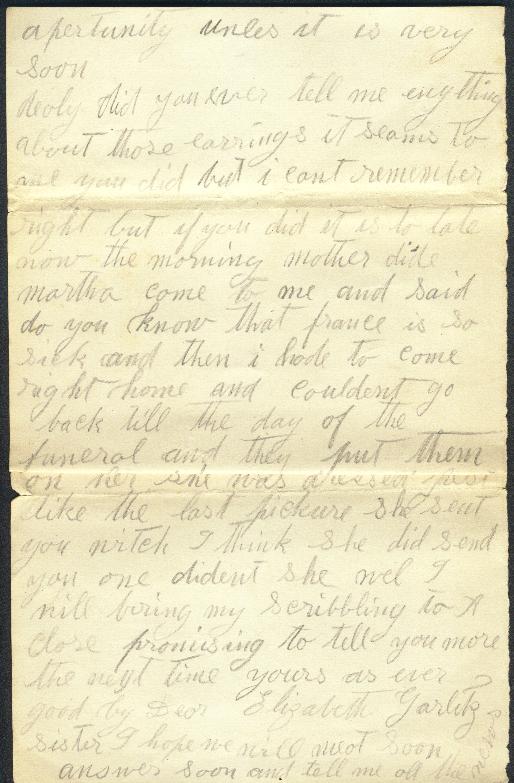 apertunity unles it is very
soon
deoly did you ever tell me enything
about those earrings it seams to
me you did but i cant remember
right but if you did it is to late
now the morning mother dide
martha come to me and said
do you know that france is so
sick and then i hade to come
right home and couldent go
back till the day of the
funeral and they put them
on her she was dressed just
like the last pickure she sent
you witch I think she did send
you one dident she wel I
will bring my scribbling to A
close promising to tell you more
the next time yours as ever
good by Dear Elizabeth Garlitz
sister I hope we will meet soon
answer soon and tell me all the
news